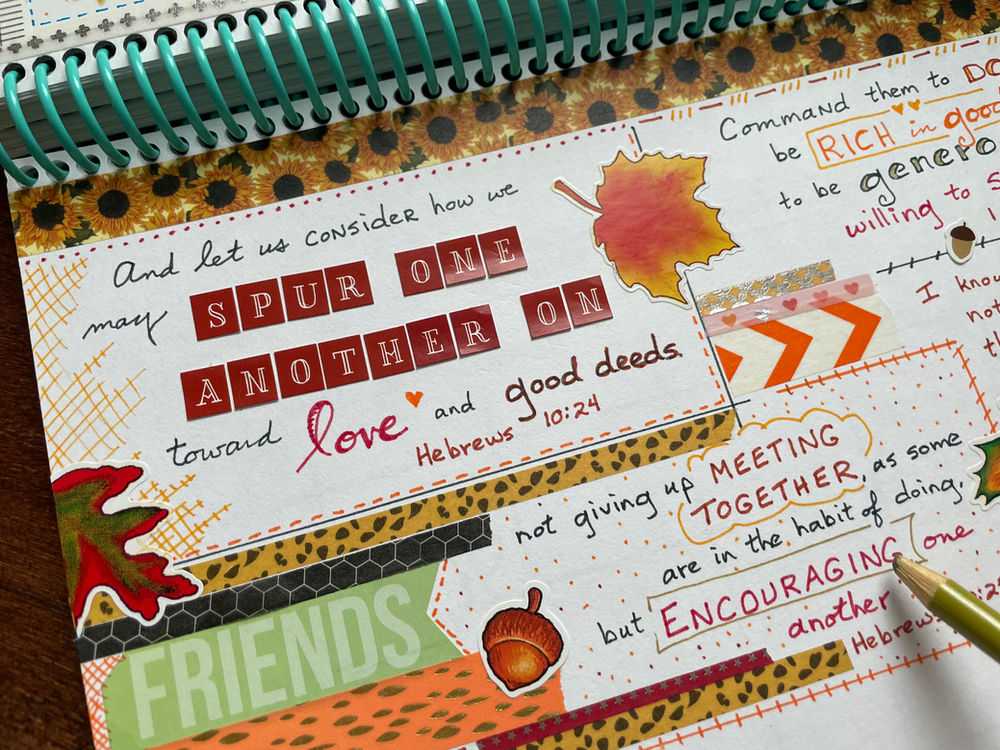 And let us consider how we
may SPUR ONE
ANOTHER ON
toward love and good deeds.
Hebrews 10:24
Command them to DO
be RICH in good
to be genero
willing to s
I know
not
th
not giving up MEETING
TOGETHER, as some
are in the habit of doing,
but ENCOURAGING one
another
Hebrews
FRIENDS